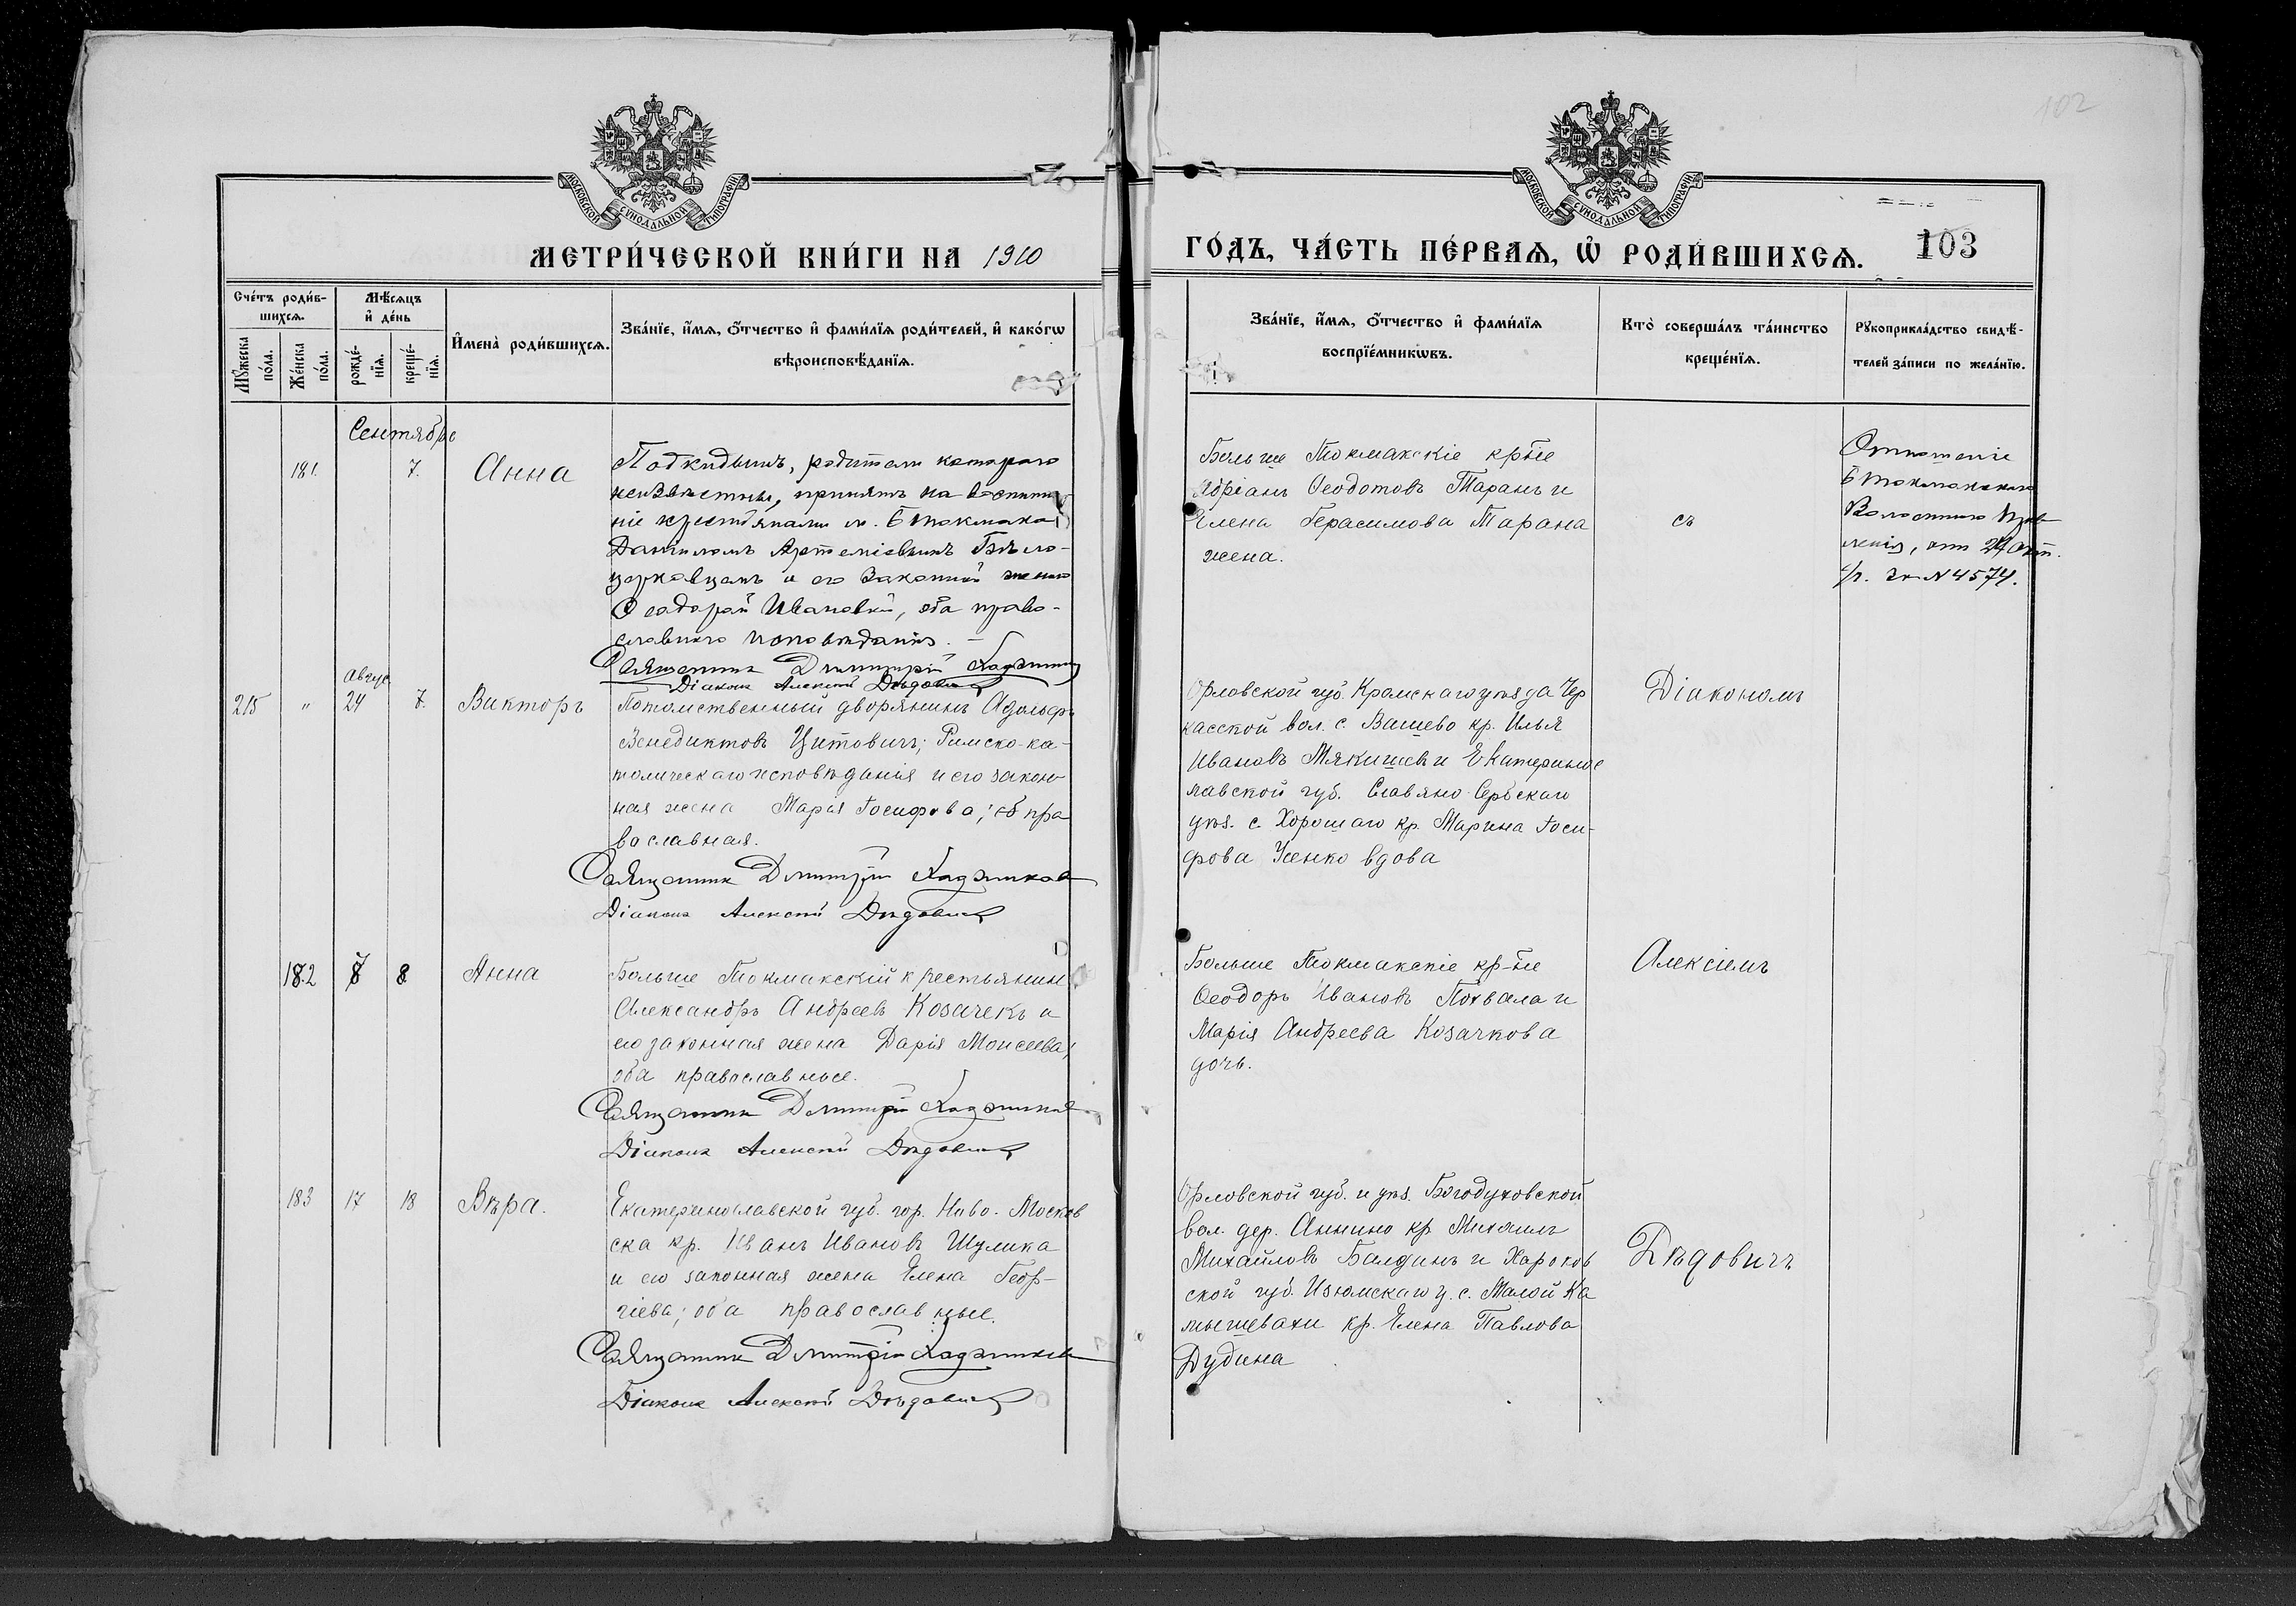 102
МОСКОВСКОЙ СѴНОДАЛЬНОЙ ТИПОГРАФІИ
МОСКОВСКОЙ СѴНОДАЛЬНОЙ ТИПОГРАФІИ
МЕТРИ́ЧЕСКОЙ КНИ́ГИ НА 1910
ГО́ДЪ, ЧА́СТЬ ПЕ́РВАѦ, Ѡ҆ РОДИ́ВШИХСѦ.
103
Сче́тъ роди́в-
шихсѧ.
Мѣ́сѧцъ
и҆ де́нь
Мꙋ́жеска
по́ла.
Же́нска
по́ла.
рожде́-
нїѧ.
креще́-
нїѧ.
И҆мена̀ роди́вшихсѧ.
Зва́нїе, и҆́мѧ, ѻ҆́тчество и҆ фами́лїѧ роди́телей, и҆ како́гѡ
вѣроисповѣ́данїѧ.
Зва́нїе, и҆́мѧ, ѻ҆́тчество и҆ фами́лїѧ
воспрїе́мникѡвъ.
Кто̀ соверша́лъ та́инство
креще́нїѧ.
Рꙋкоприкла́дство свидѣ́-
телей за́писи по жела́нїю.
Сентябрь
181. 7. Анна
Подкидышъ, родители котораго
неизвѣстны, принятъ на воспита
ніе крестьянами м. Б Токмака
Даніиломъ Артеміевымъ Бѣло-
церковцемъ и его законной женою
Ѳеодорой Ивановой, оба право-
славнаго исповѣданія. -
Священникъ Димитрій
Діаконъ Алексѣй Дѣдовичъ
Больше Токмакскіе кр-не
Адріанъ Ѳеодотовъ Таранъ и
Елена Герасимова Тарана
жена.
съ
Отношеніе
Б Токмакскаго
Волостного Прав
ленія, отъ 24
с/г. за № 4574.
Авгус
215 " 24 7. Викторъ
Потомственный дворянинъ Адольфъ
Венедиктовъ Цитовичъ; Римско-ка-
толическаго исповѣданія и его закон-
ная жена Марія Іосифова; пра
вославная.
Священникъ Димитрій Хаджиковъ
Діаконъ Алексѣй Дѣдовичъ
Орловской губ. Кромскаго уѣзда Чер
касской вол. с. Вашево кр. Илья
Ивановъ Мякишевъ и Екатеринос
лавской губ. Славяно-Сербскаго
уѣз. с. Хорошаго кр. Марина Іоси-
фова Усенко вдова
Діакономъ
182 7 8 Анна
Больше Токмакскій крестьянинъ
Александръ Андреевъ Козачекъ и
его законная жена Дарія Моисеева;
оба православные.
Священникъ Димитрій Хаджиковъ
Діаконъ Алексѣй Дѣдовичъ
Больше Токмакскіе кр-не
Ѳеодоръ Ивановъ Похвала и
Марія Андреева Козачкова
дочь.
Алексіемъ
183 17 18 Вѣра.
Екатеринославской губ. гор. Ново-Москов
ска кр. Иванъ Ивановъ Шулика
и его законная жена Елена Геор-
гіева; оба православные.
Священникъ Димитрій Хаджиковъ
Діаконъ Алексѣй Дѣдовичъ
Орловской губ. и уѣз. Богодуховской
вол. дер. Аннино кр Михаилъ
Михайловъ Балдинъ и Харьков
ской губ. Изюмскаго у. с. Малой Ка
мышевахи кр. Елена Павлова
Дудина
Дѣдовичъ